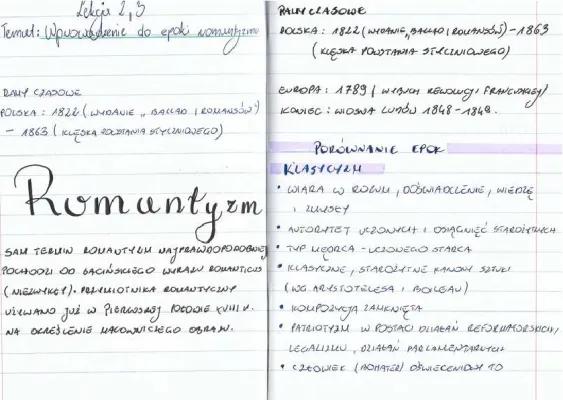 Lekcja 2,3
Temat: Wprowadzenie do epoki romantyzm
RAMY CZASOWE
POLSKA: 1822 (WYDANIE „BALLAD I ROMANSÓW")
- 1863 (KLĘSKA POWSTANIA STYCZNIOWEGO)
Romantyzm
SAM TERMIN ROMANTYZM NAJPRAWDOPODOBNIEJ
POCHODZI OD ŁACIŃSKIEGO WYRAZU ROMANTICUS
(NIEZWYKŁY). PRZYMIOTNIKA ROMANTYCZNY
UŻYWANO JUŻ W PIERWSZEJ POŁOWIE XVIII W.
NA OKREŚLENIE MALOWNICZEGO OBRAZU.
RAMY CZASOWE
POLSKA: 1822 (WYDANIE „BALLAD I ROMANSÓW") - 1863
(KLĘSKA POWSTANIA STYCZNIOWEGO)
EUROPA: 1789 (WYBUCH REWOLUCJI FRANCUSKIEJ)
KONIEC: WIOSNA LUDÓW 1848-1849.
PORÓWNANIE EPOK
KLASYCYZM
• WIARA W ROZUM, DOŚWIADCZENIE, WIEDZĘ
I ZMYSŁY
• AUTORYTET UCZONYCH I OSIĄGNIĘĆ STAROŻYTNYCH
• TYP MĘDRCA - UCZONEGO STARCA
• KLASYCZNE, STAROŻYTNE KANONY SZTUKI
(WG ARYSTOTELESA I BOILEAU)
• KOMPOZYCJA ZAMKNIĘTA
• PATRIOTYZM W POSTACI DZIAŁAŃ REFORMATORSKICH,
LEGALIZMU, DZIAŁAŃ PARLAMENTARNYCH
• CZŁOWIEK (BOHATER) OŚWIECENIOWY TO